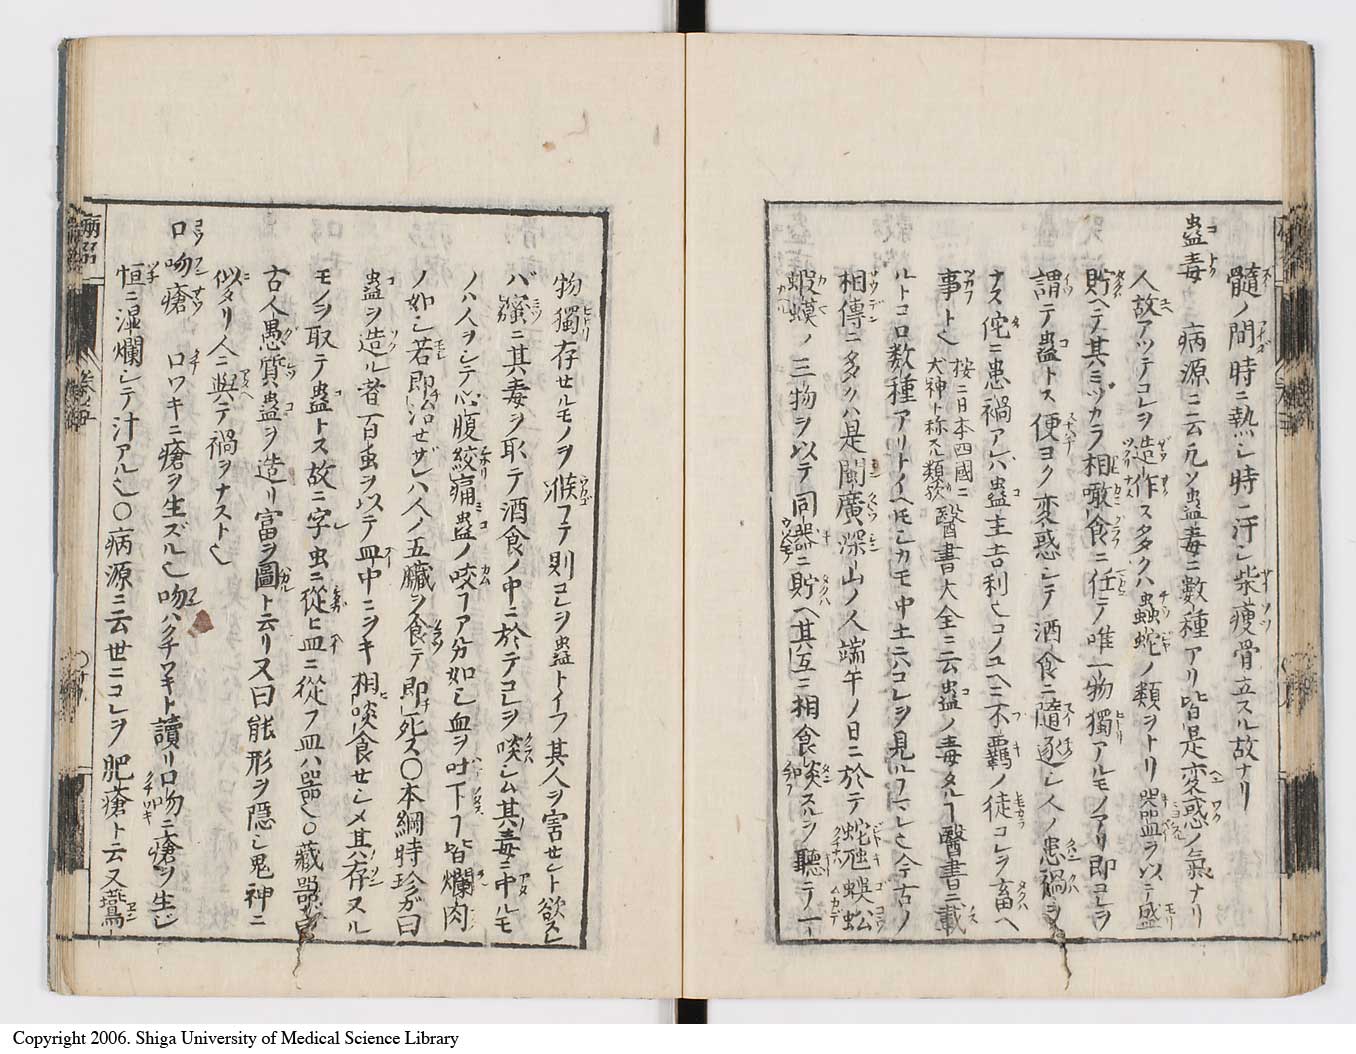 髓ノ間時ニ熱シ時ニ汗シ柴痩骨立スル故ナリ
蠱毒　病源ニ云凡ソ蠱毒ニ數種アリ皆是変惑ノ氣ナリ
人故アツテコレヲ造作ス多クハ蟲蛇ノ類ヲトリ器皿ヲ以テ盛
貯ヘテ其ミヅカラ相噉食ニ任テ唯一物獨アルモノアリ即コレヲ
謂テ蠱トス便ヨク変惑シテ酒食ニ隨逐シ人ノ患禍ヲ
ナス佗ニ患禍アレバ蠱主吉利也コノユヘニ不羈ノ徒コレヲ畜ヘ
事ト也 按ニ日本四國ニ犬神ト称スル類欤 醫書大全ニ云蠱ノ毒タルヿ醫書ニ載
ルトコロ数種アリトイヘモシカモ中土六コレヲ見ルヿマレ也今古ノ
相傳ニ多クハ是閩廣深山ノ人端午ノ日ニ於テ蛇虺蜈蚣
蝦蟆ノ三物ヲ以テ同器ニ貯ヘ其互ニ相食啖スルヲ聽テ一
物獨存セルモノヲ候フテ則コレヲ蠱トイフ其人ヲ害セント欲スレ
バ竊ニ其毒ヲ取テ酒食ノ中ニ於テコレヲ啖シム其毒ニ中ルモ
ノハ人ヲシテ心腹絞痛蠱ノ咬ヿア分如シ血ヲ吐下ヿ皆爛肉
ノ如シ若即治セザレハ人ノ五臓ヲ食テ即死ス〇本綱時珍ガ曰
蠱ヲ造ル者百虫ヲ以テ皿中ニヲキ相啖食セシメ其存スル
モノヲ取テ蠱トス故ニ字虫ニ從ヒ皿ニ從フ皿ハ器也〇藏器曰
古人愚質蠱ヲ造リ富ヲ圖ト云リ又曰能形ヲ隱シ鬼神ニ
似タリ人ニ與テ禍ヲナスト也
口吻瘡　口ワキニ瘡ヲ生ズル也吻ハクチワキト讀リ口吻ニ瘡ヲ生シ
恒ニ湿爛シテ汁アル也〇病源ニ云世ニコレヲ肥瘡ト云又鷰
Copyright 2006. Shiga University of Medical Science Library